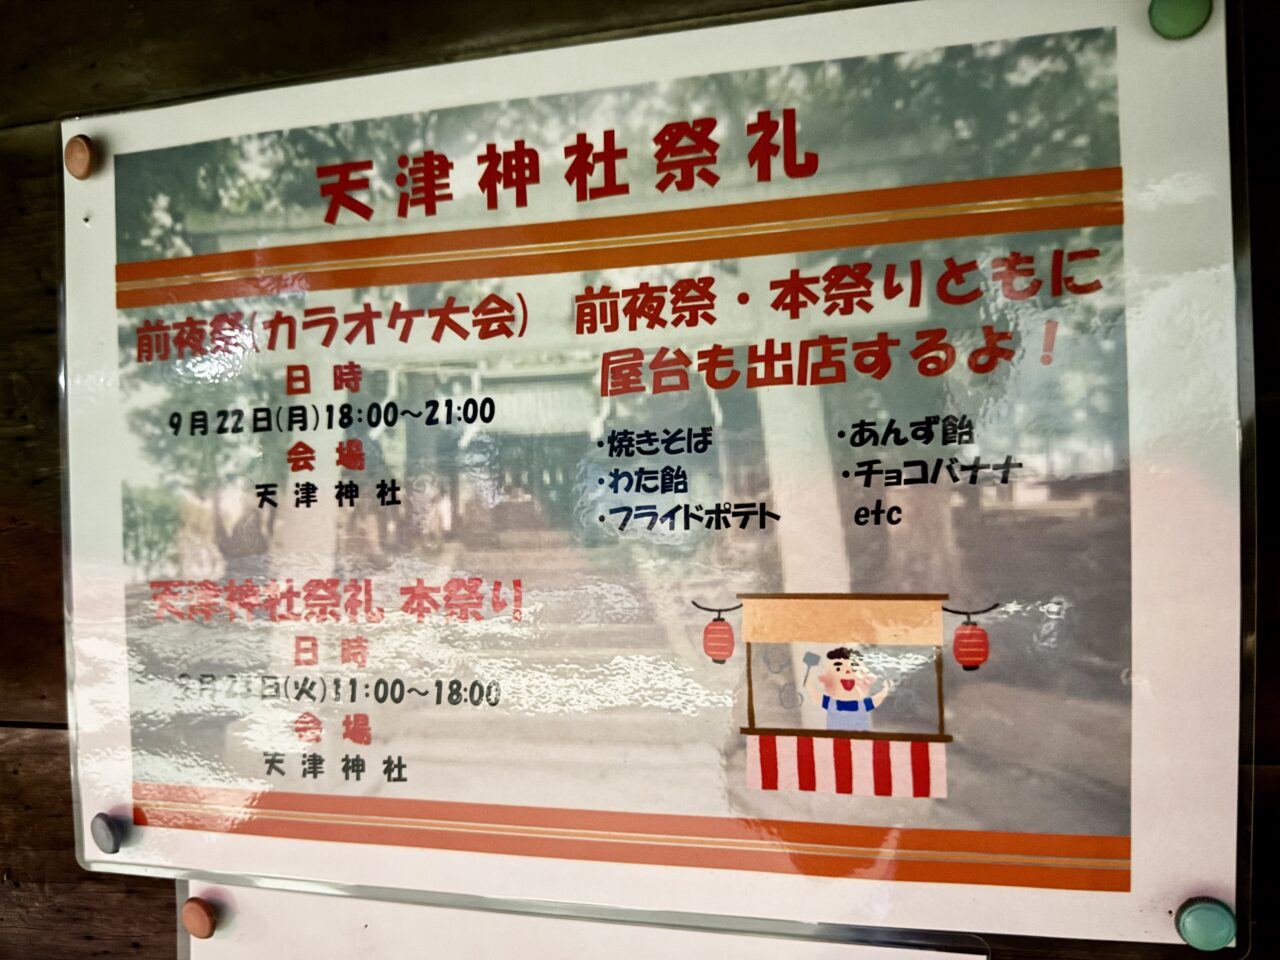 天津神社祭礼
前夜祭(カラオケ大会)
日時
9月22日(月)18:00～21:00
会場
天津神社
天津神社祭礼 本祭り
日時
9月23日(火)11:00～18:00
会場
天津神社
前夜祭・本祭りともに
屋台も出店するよ！
・焼きそば
・わた飴
・フライドポテト
・あんず飴
・チョコバナナ
etc